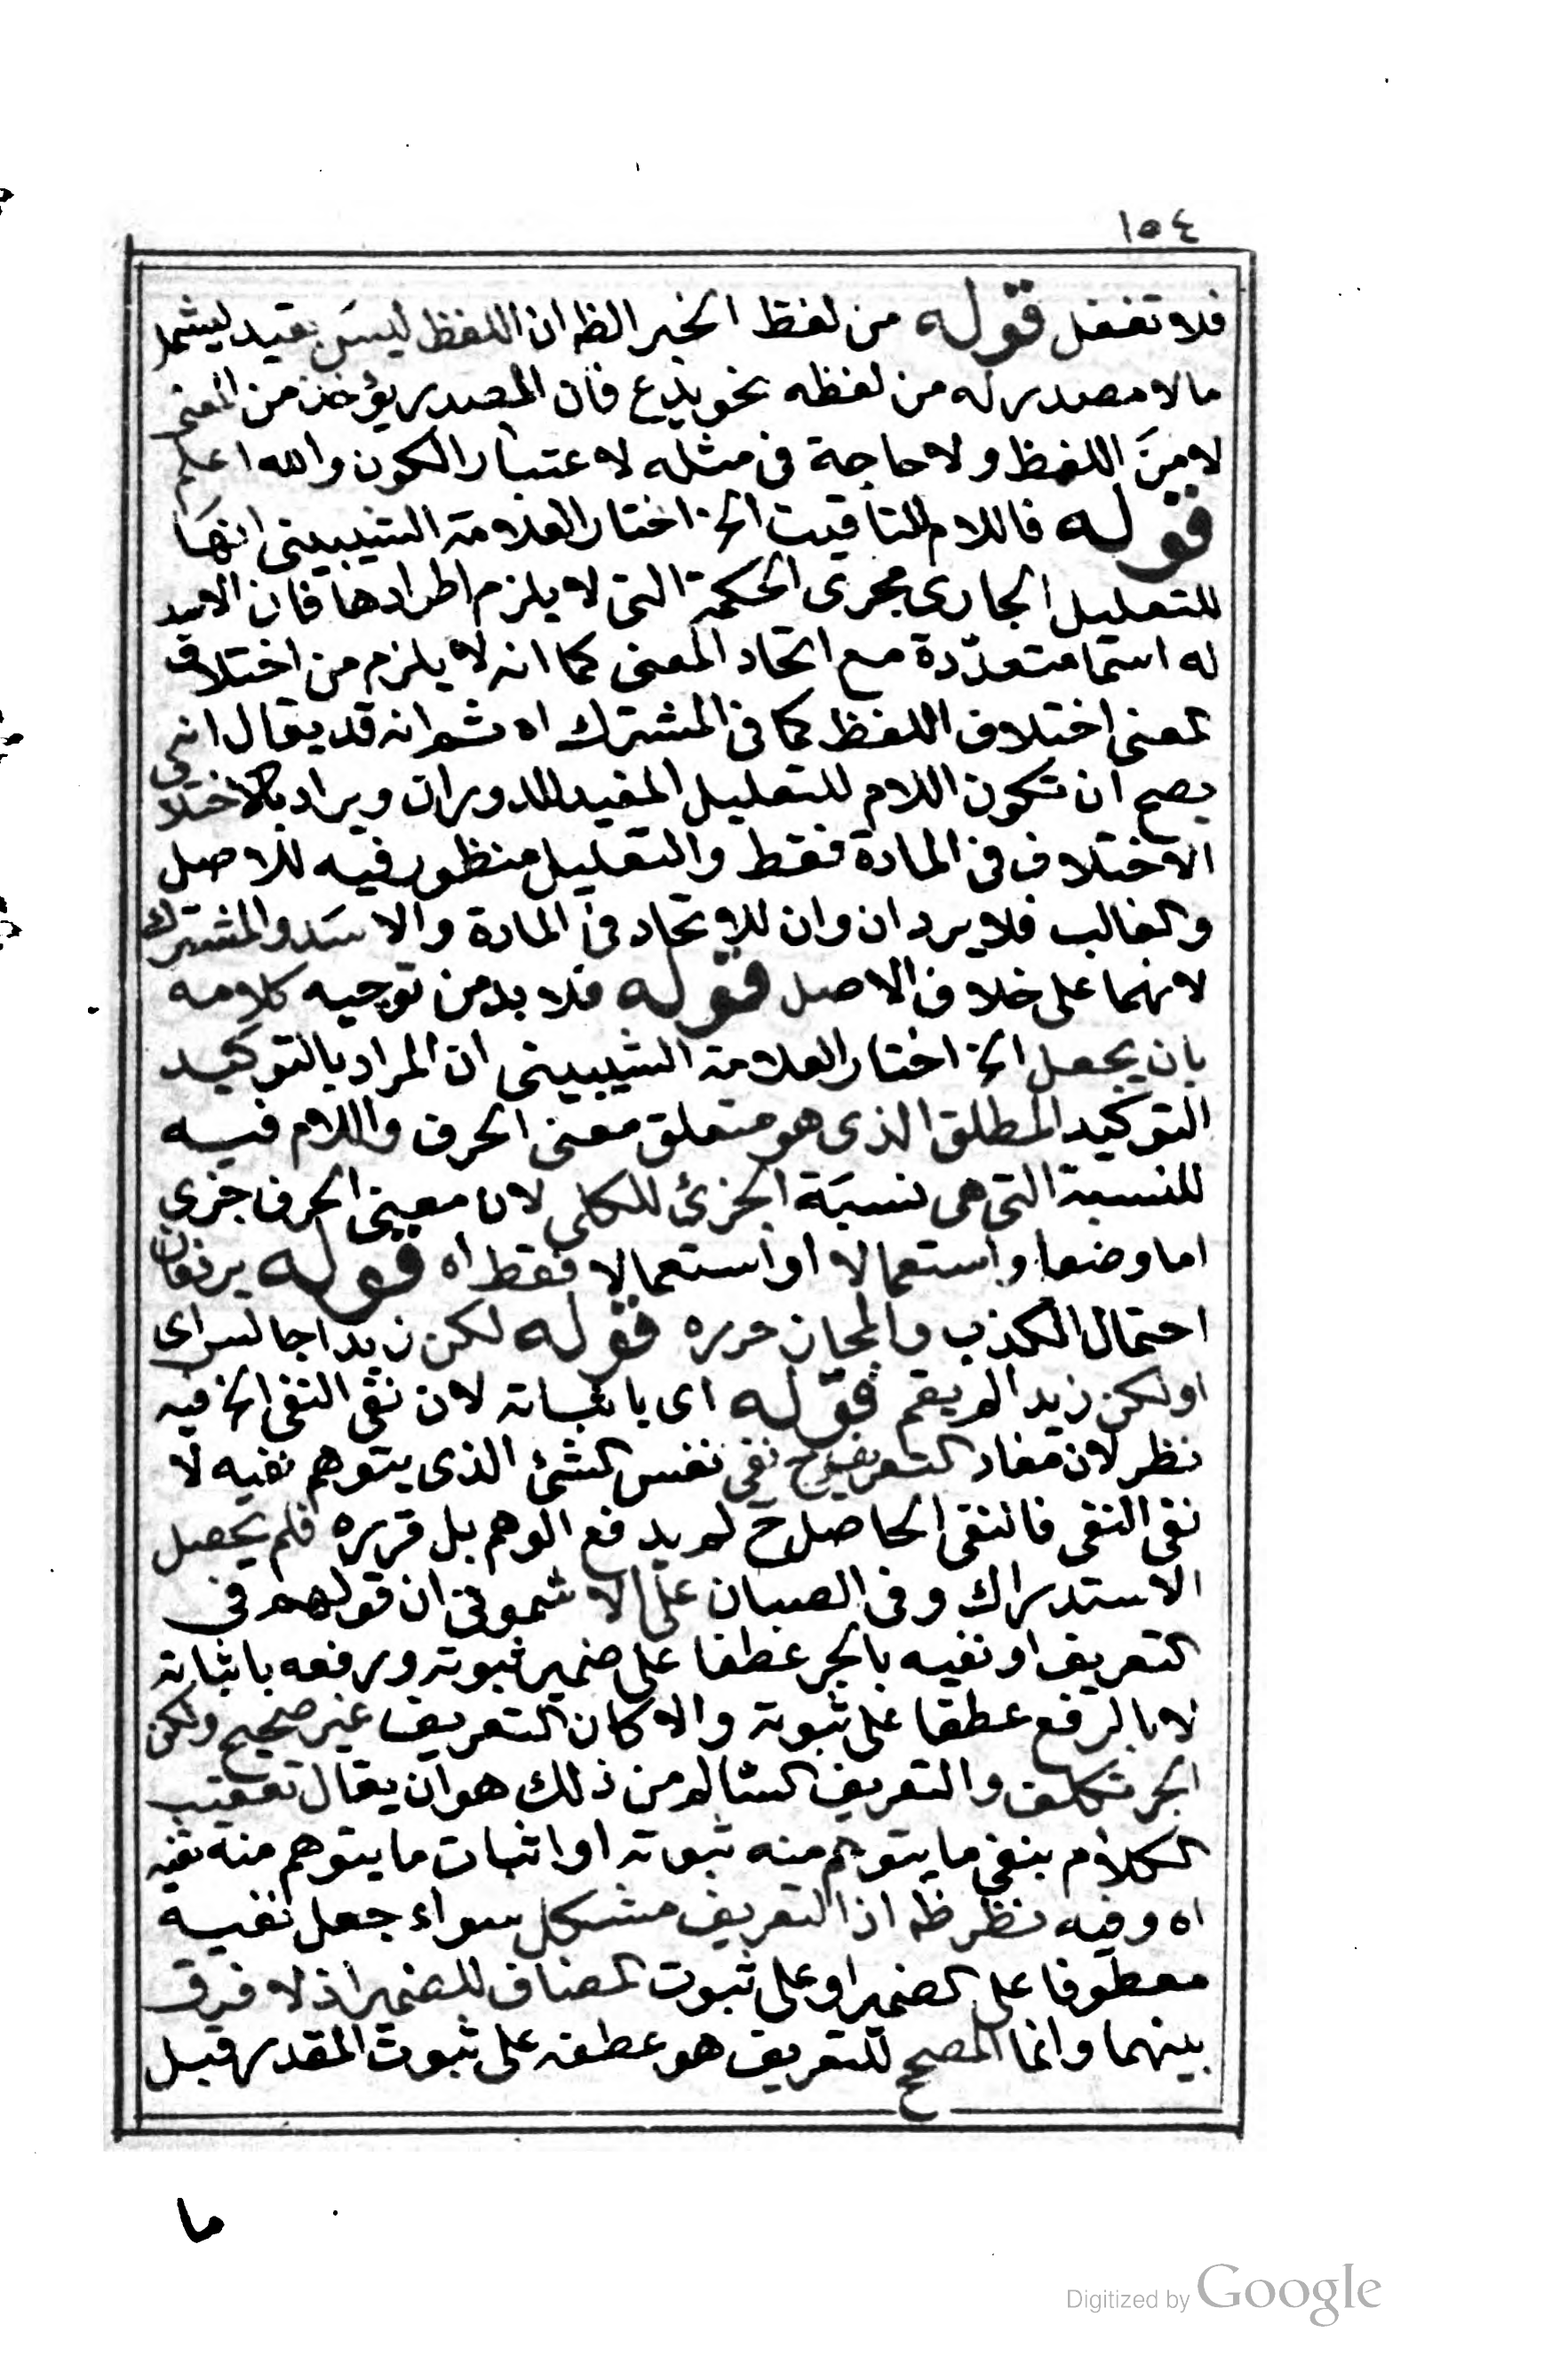 ١٥٤
فلا تغفل قوله من لفظ الخبر الظ ان اللفظ ليس بقيد ليشمل
مالا مصدر له من لفظه نحو يذع فان المصدر يؤخذ من المعنى
لا من اللفظ ولا حاجة فى مثله لاعتبار الكون والله اعلم
قوله فاللام للتاقيت الخ اختار العلامة الشيبينى انها
للتعليل الجارى مجرى الحكمة التى لا يلزم اطرادها فان الاسد
له اسما متعددة مع اتحاد المعنى كما انه لا يلزم من اختلاف
المعنى اختلاف اللفظ كما فى المشترك اه ثم انه قد يقال انى
يصح ان تكون اللام للتعليل المفيد للدوران ويراد بالاختلا
الاختلاف فى المادة فقط والتعليل منظور فيه للاصل
والغالب فلا يرد ان وان للاتحاد فى المادة والاسد والمشترك
لانهما على خلاف الاصل قوله فلا بد من توجيه كلامه
بان يجعل الخ اختار العلامة الشيبينى ان المراد بالتوكيد
التوكيد المطلق الذى هو متعلق معنى الحرف واللام فيه
للنسبة التى هى نسبة الجزئ للكلى لان معنى الحرف جزى
اما وضعا واستعمالا او استعمالا فقط اه قوله يرفعان
احتمال الكذب والمجاز حرره قوله لكن زيدا جالس اى
او لكن زيدا لم يقم قوله اى باثباته لان نفى النفى الخ فيه
نظر لان مفاد التعريف ح نفى نفس الشئ الذى يتوهم نفيه لا
نفى النفى فالنفى الحاصل ح لم يدفع الوهم بل قرره فلم يحصل
الاستدراك وفى الصبان على الاشمونى ان قولهم فى
التعريف او نفيه بالجر عطفا على ضمير ثبوته ورفعه باثباته
لا بالرفع عطفا على ثبوته والا كان التعريف غير صحيح ولكن
الجر تكلف والتعريف السالم من ذلك هو ان يقال تعقيب
الكلام بنفى ما يتوهم منه ثبوته او اثبات ما يتوهم منه نفيه
اه وفيه نظر ظ اذ التعريف مشكل سواء جعل نفيه
معطوفا على الضمير او على ثبوت المضاف للضمير اذ لا فرق
بينهما وانما المصحح للتعريف هو عطفه على ثبوت المقدر قبل
ما
Digitized by Google